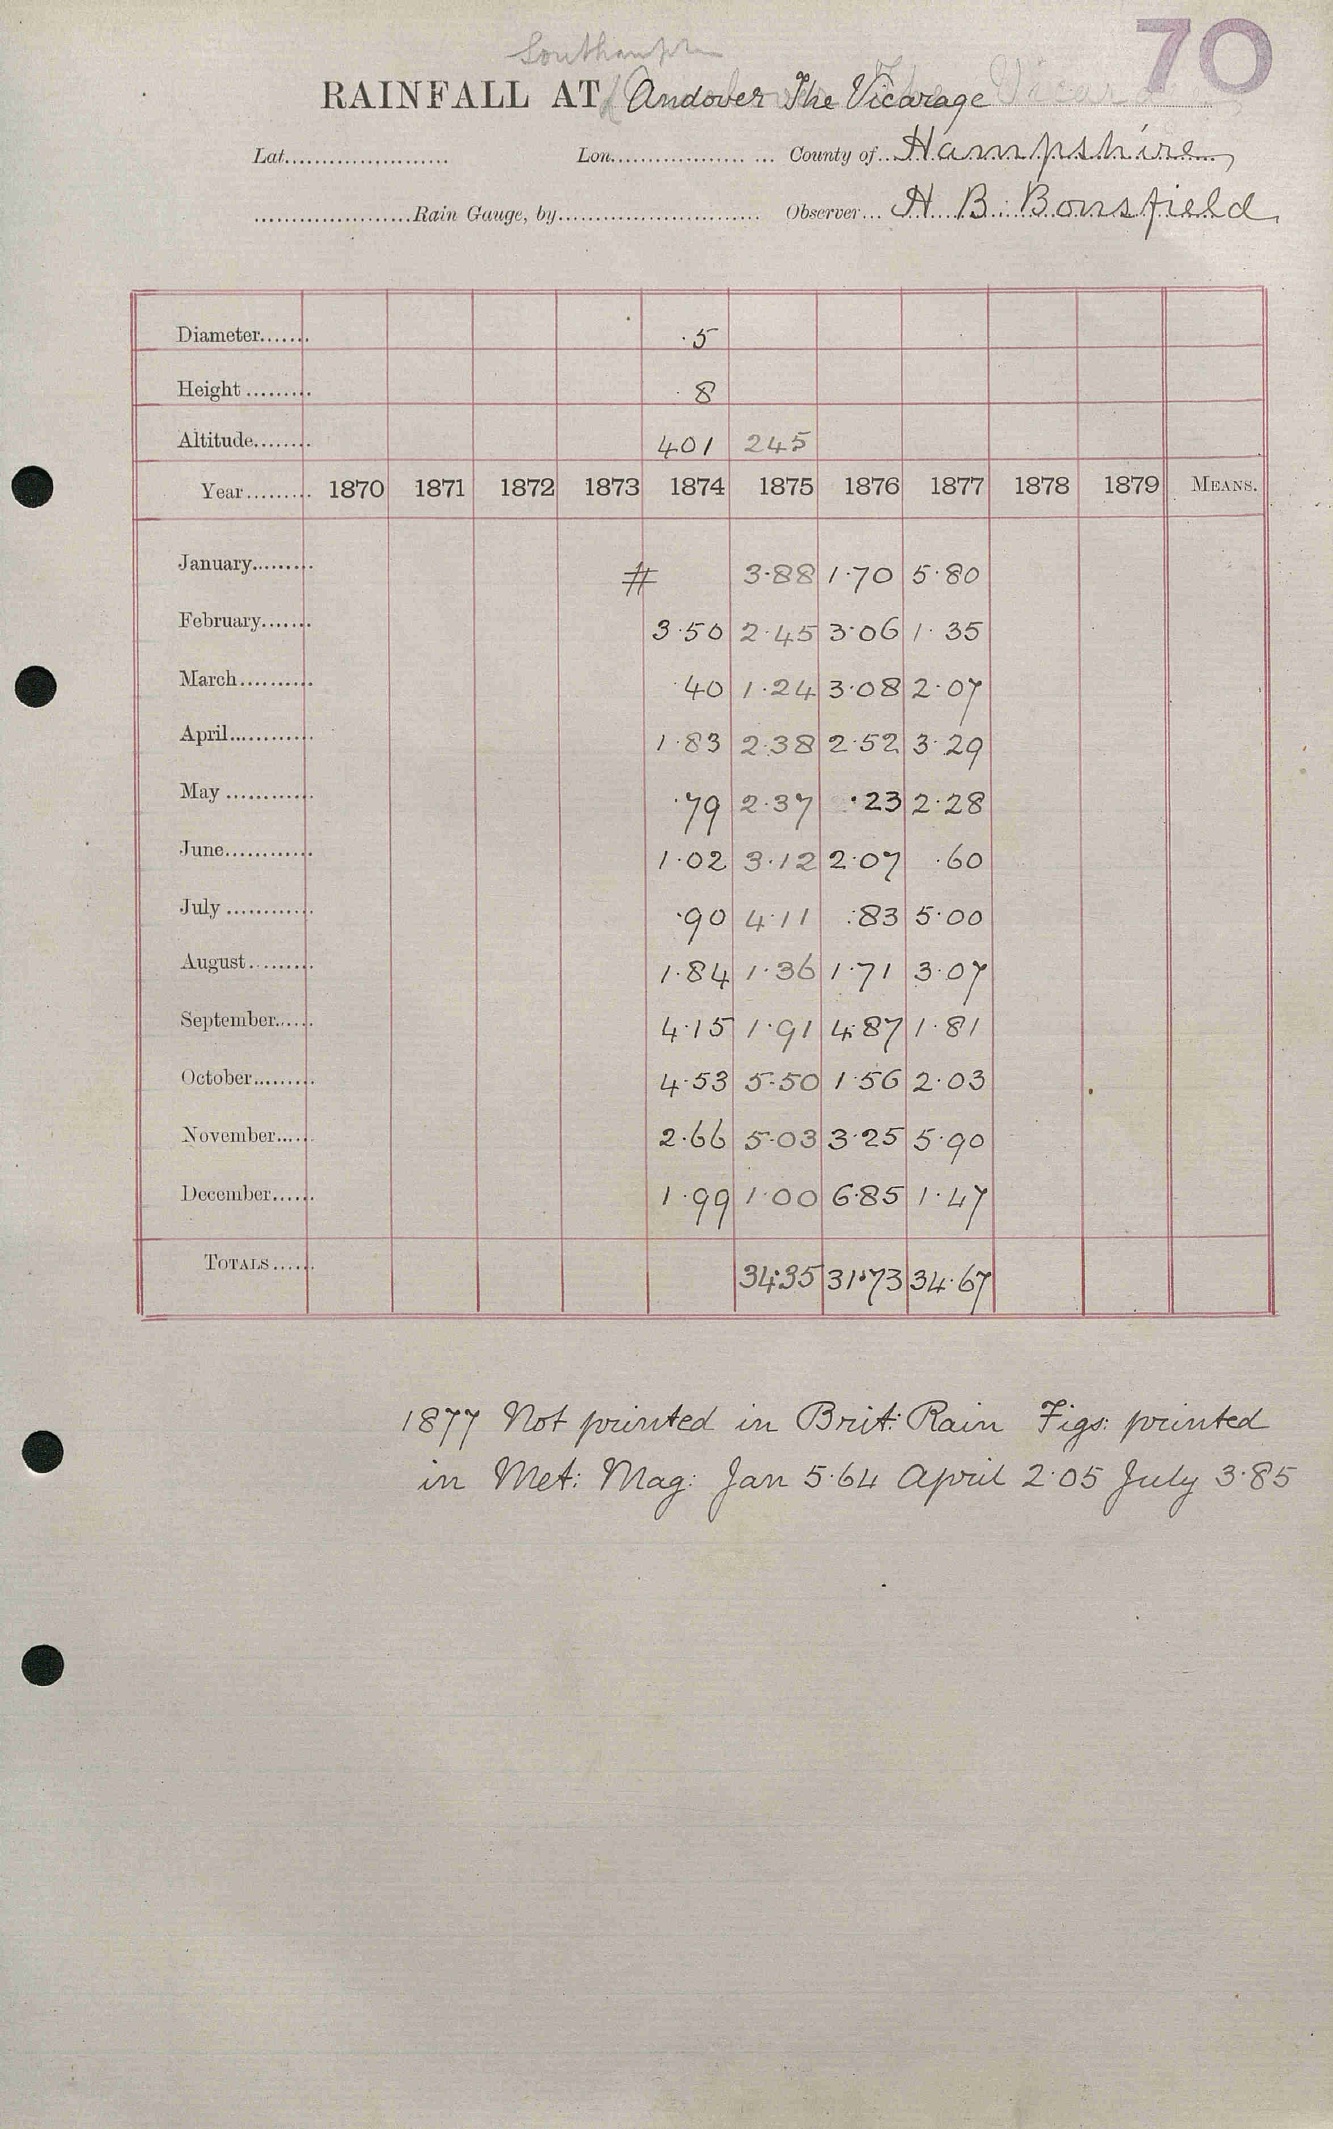 70
Southampton
RAINFALL AT Andover The Vicarage
Lat. Lon. County of Hampshire
Rain Gauge, by Observer H B. Bonsfield
Diameter ·5
Height 8
Altitude 401 245
Year 1870 1871 1872 1873 1874 1875 1876 1877 1878 1879 MEANS.
January # 3·88 1·70 5·80
February 3·50 2·45 3·06 1·35
March ·40 1·24 3·08 2·07
April 1·83 2·38 2·52 3·29
May ·79 2·37 ·23 2·28
June 1·02 3·12 2·07 ·60
July ·90 4·11 ·83 5·00
August 1·84 1·36 1·71 3·07
September 4·15 1·91 4·87 1·81
October 4·53 5·50 1·56 2·03
November 2·66 5·03 3·25 5·90
December 1·99 1·00 6·85 1·47
TOTALS 34·35 31·73 34·67
1877 Not printed in Brit: Rain Figs: printed
in Met: Mag: Jan 5·64 April 2·05 July 3·85